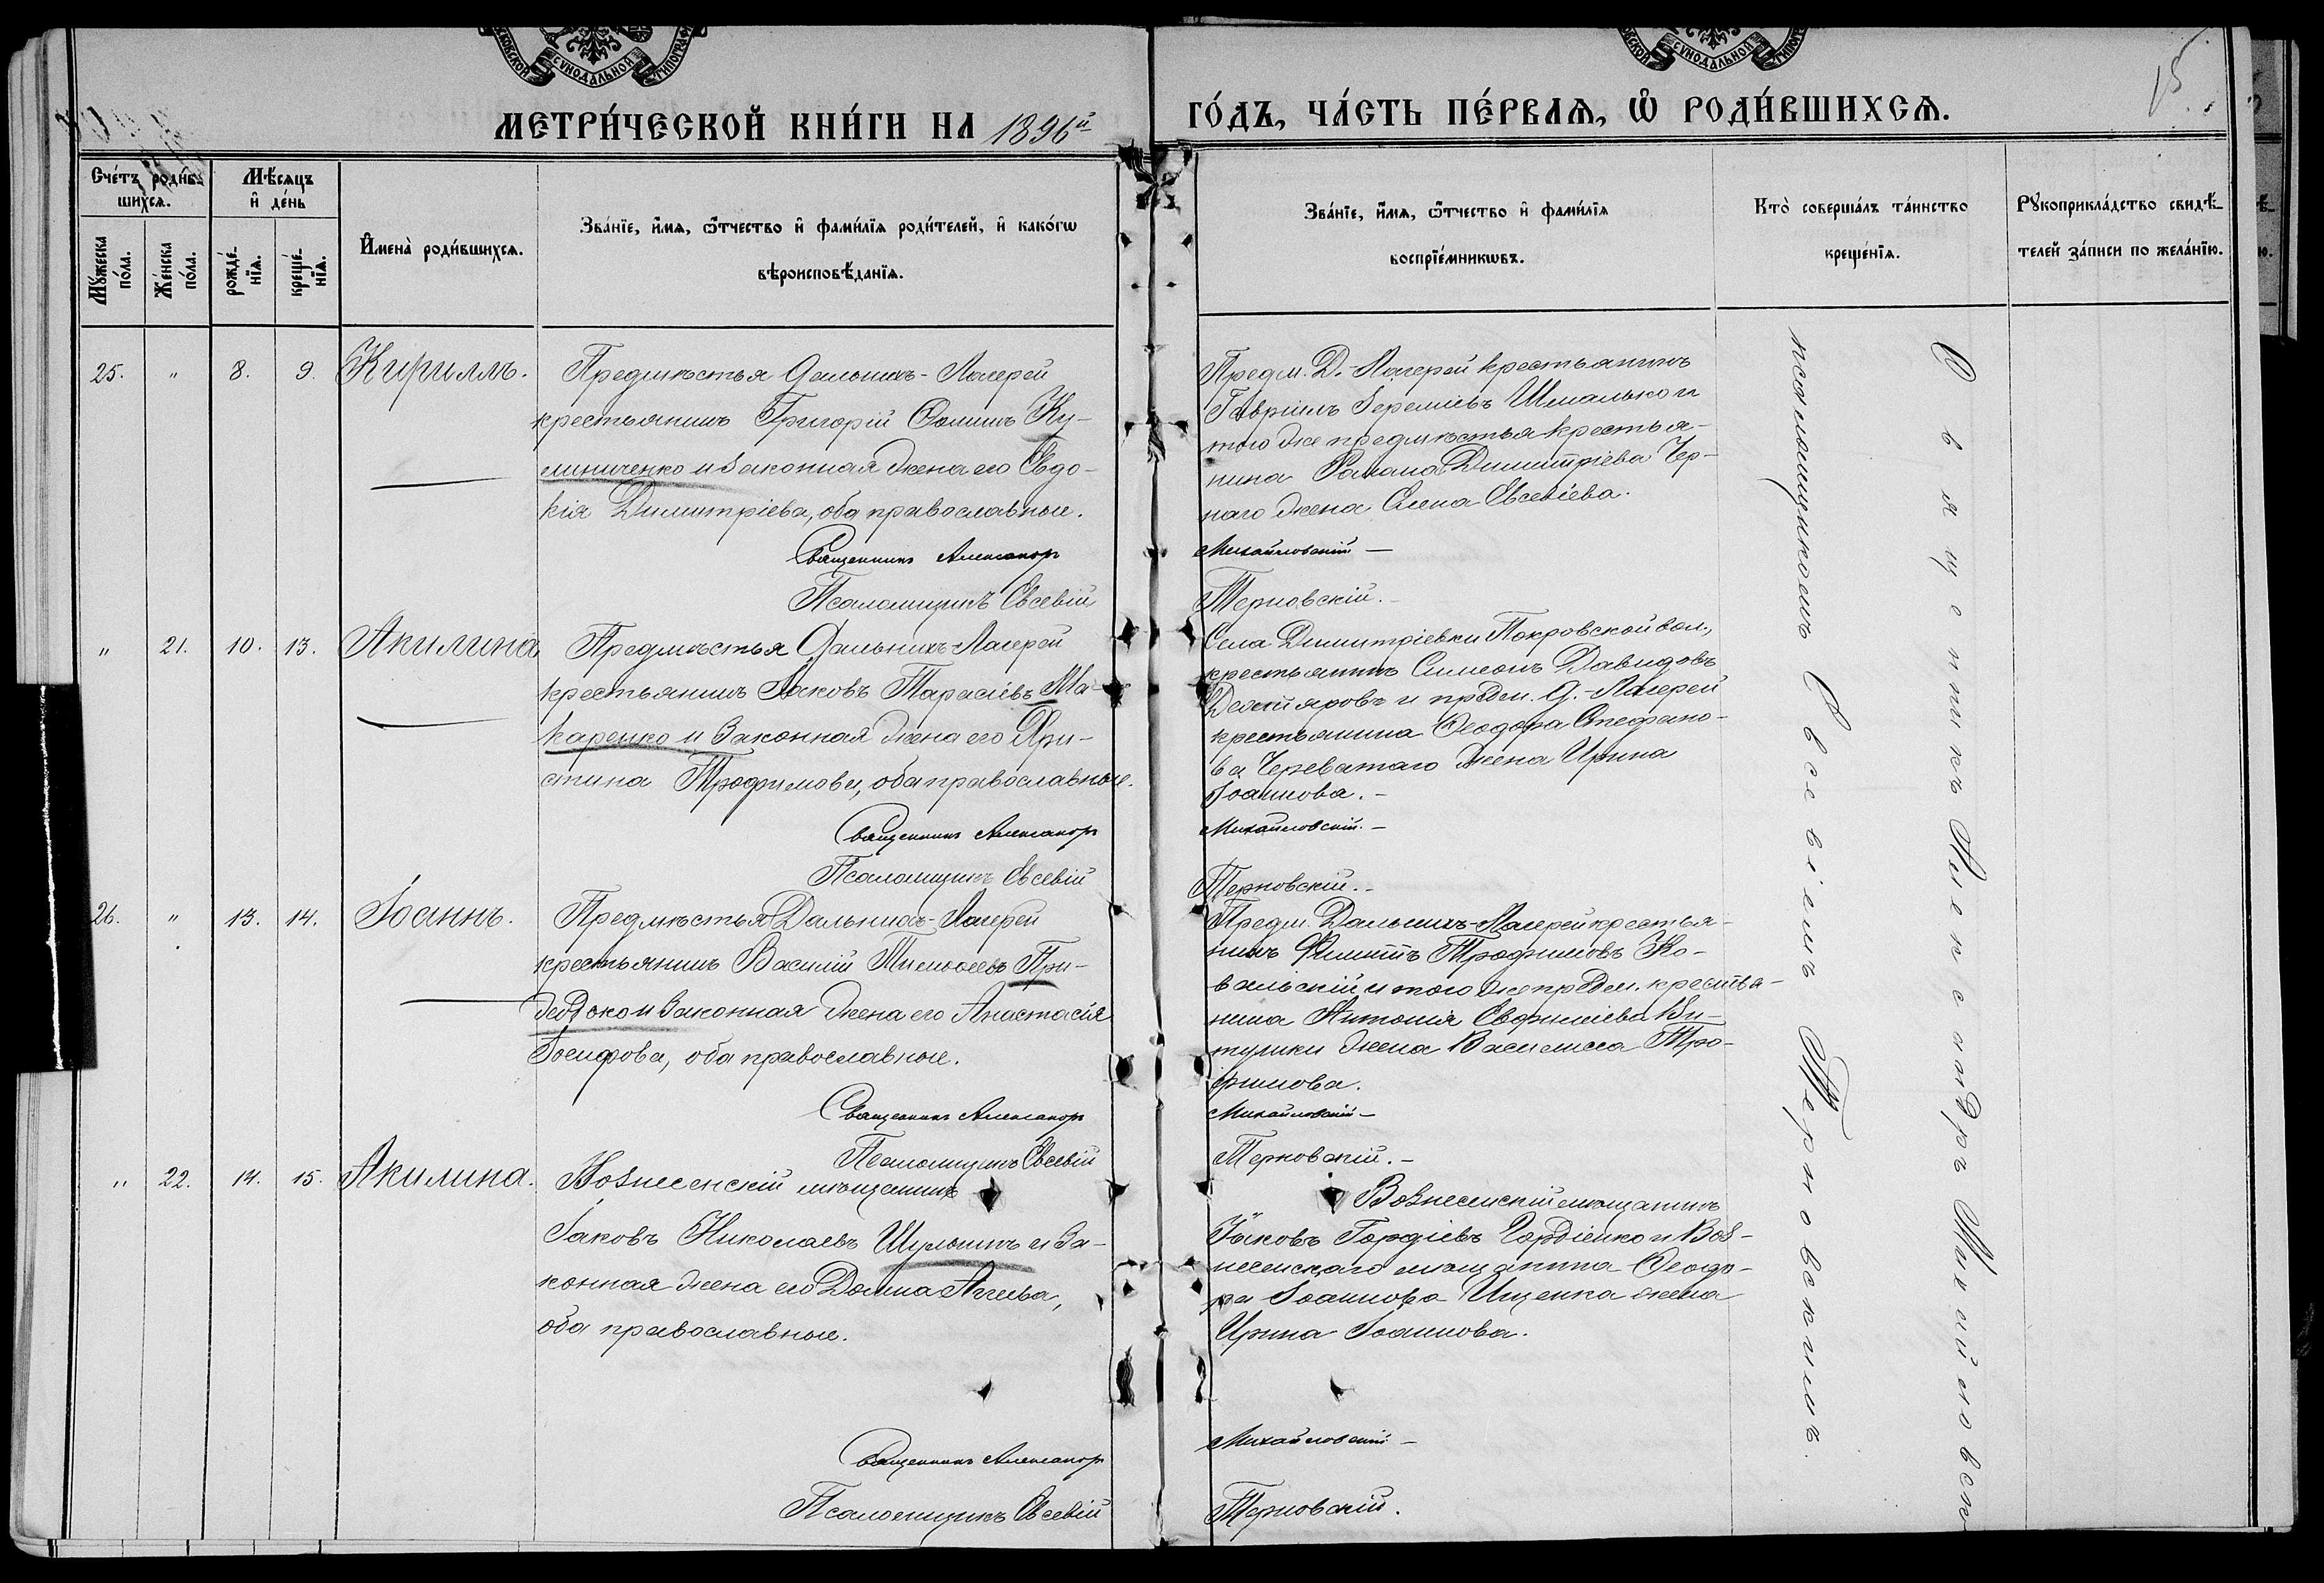 МЕТРИ́ЧЕСКОЙ КНИ́ГИ НА 1896й
ГО́ДЪ, ЧА́СТЬ ПЕ́РВАѦ, Ѡ҆ РОДИ́ВШИХСѦ.
15
Сче́тъ роди́в-
шихсѧ.
Мѣ́сѧцъ
и҆ де́нь
Мꙋ́жеска
по́ла.
Же́нска
по́ла.
рожде́-
нїѧ.
креще́-
нїѧ.
И҆мена̀ роди́вшихсѧ.
Зва́нїе, и҆́мѧ, ѻ҆́тчество и҆ фами́лїѧ роди́телей, и҆ како́гѡ
вѣроисповѣ́данїѧ.
Зва́нїе, и҆́мѧ, ѻ҆́тчество и҆ фами́лїѧ
воспрїе́мникѡвъ.
Кто̀ соверша́лъ та́инство
креще́нїѧ.
Рꙋкоприкла́дство свидѣ́-
телей за́писи по жела́нїю.
25. " 8. 9. Кириллъ.
Предмѣстья Дальнихъ-Лагерей
крестьянинъ Григорій Ѳоминъ Ку-
линиченко и законная жена его Евдо-
кія Димитріева, оба православные.
Священникъ Александръ
Псаломщикъ Евсевій
Предм. Д.-Лагерей крестьянинъ
Гавріилъ Іереміевъ Шмалько и
того же предмѣстья крестья-
нина Романа Димитріева Чер-
наго жена Елена Евсевіева.
Михайловскій —
Терновскій.
" 21. 10. 13. Акилина
Предмѣстья Дальнихъ-Лагерей
крестьянинъ Іаковъ Тарасіевъ Ма-
каренко и законная жена его Хри-
стина Трофимова, оба православные.
Священникъ Александръ
Псаломщикъ Евсевій
Села Димитріевки Покровской вол.,
крестьянинъ Симеонъ Давидовъ
и предм. Д.-Лагерей
крестьянина Ѳеодора Стефано-
ва Череватаго жена Ирина
Іоаннова. —
Михайловскій. —
Терновскій. —
26. " 13. 14. Іоаннъ.
Предмѣстья Дальнихъ-Лагерей
крестьянинъ Василій Тимоѳеевъ При-
и законная жена его Анастасія
Іосифова, оба православные.
Священникъ Александръ
Псаломщикъ Евсевій
Предм. Дальнихъ-Лагерей крестья-
нинъ Филиппъ Трофимовъ Ко-
вальскій и того же предм. крестья-
нина Антонія Евфиміева Ви-
тушки жена Василисса Тро-
фимова.
Михайловскій —
Терновскій. —
" 22. 14. 15. Акилина.
Вознесенскій мѣщанинъ
Іаковъ Николаевъ Шульгинъ и за-
конная жена его Домна Аггеева,
оба православные.
Священникъ Александръ
Псаломщикъ Евсевій
Вознесенскій мѣщанинъ
Іаковъ Гордіевъ Гордіенко и Воз-
несенскаго мѣщанина Ѳеодо-
ра Іоаннова Ищенка жена
Ирина Іоаннова.
Михайловскій —
Терновскій.
Священникъ Александръ Михайловск
псаломщикомъ Евсевіемъ Терновскимъ.